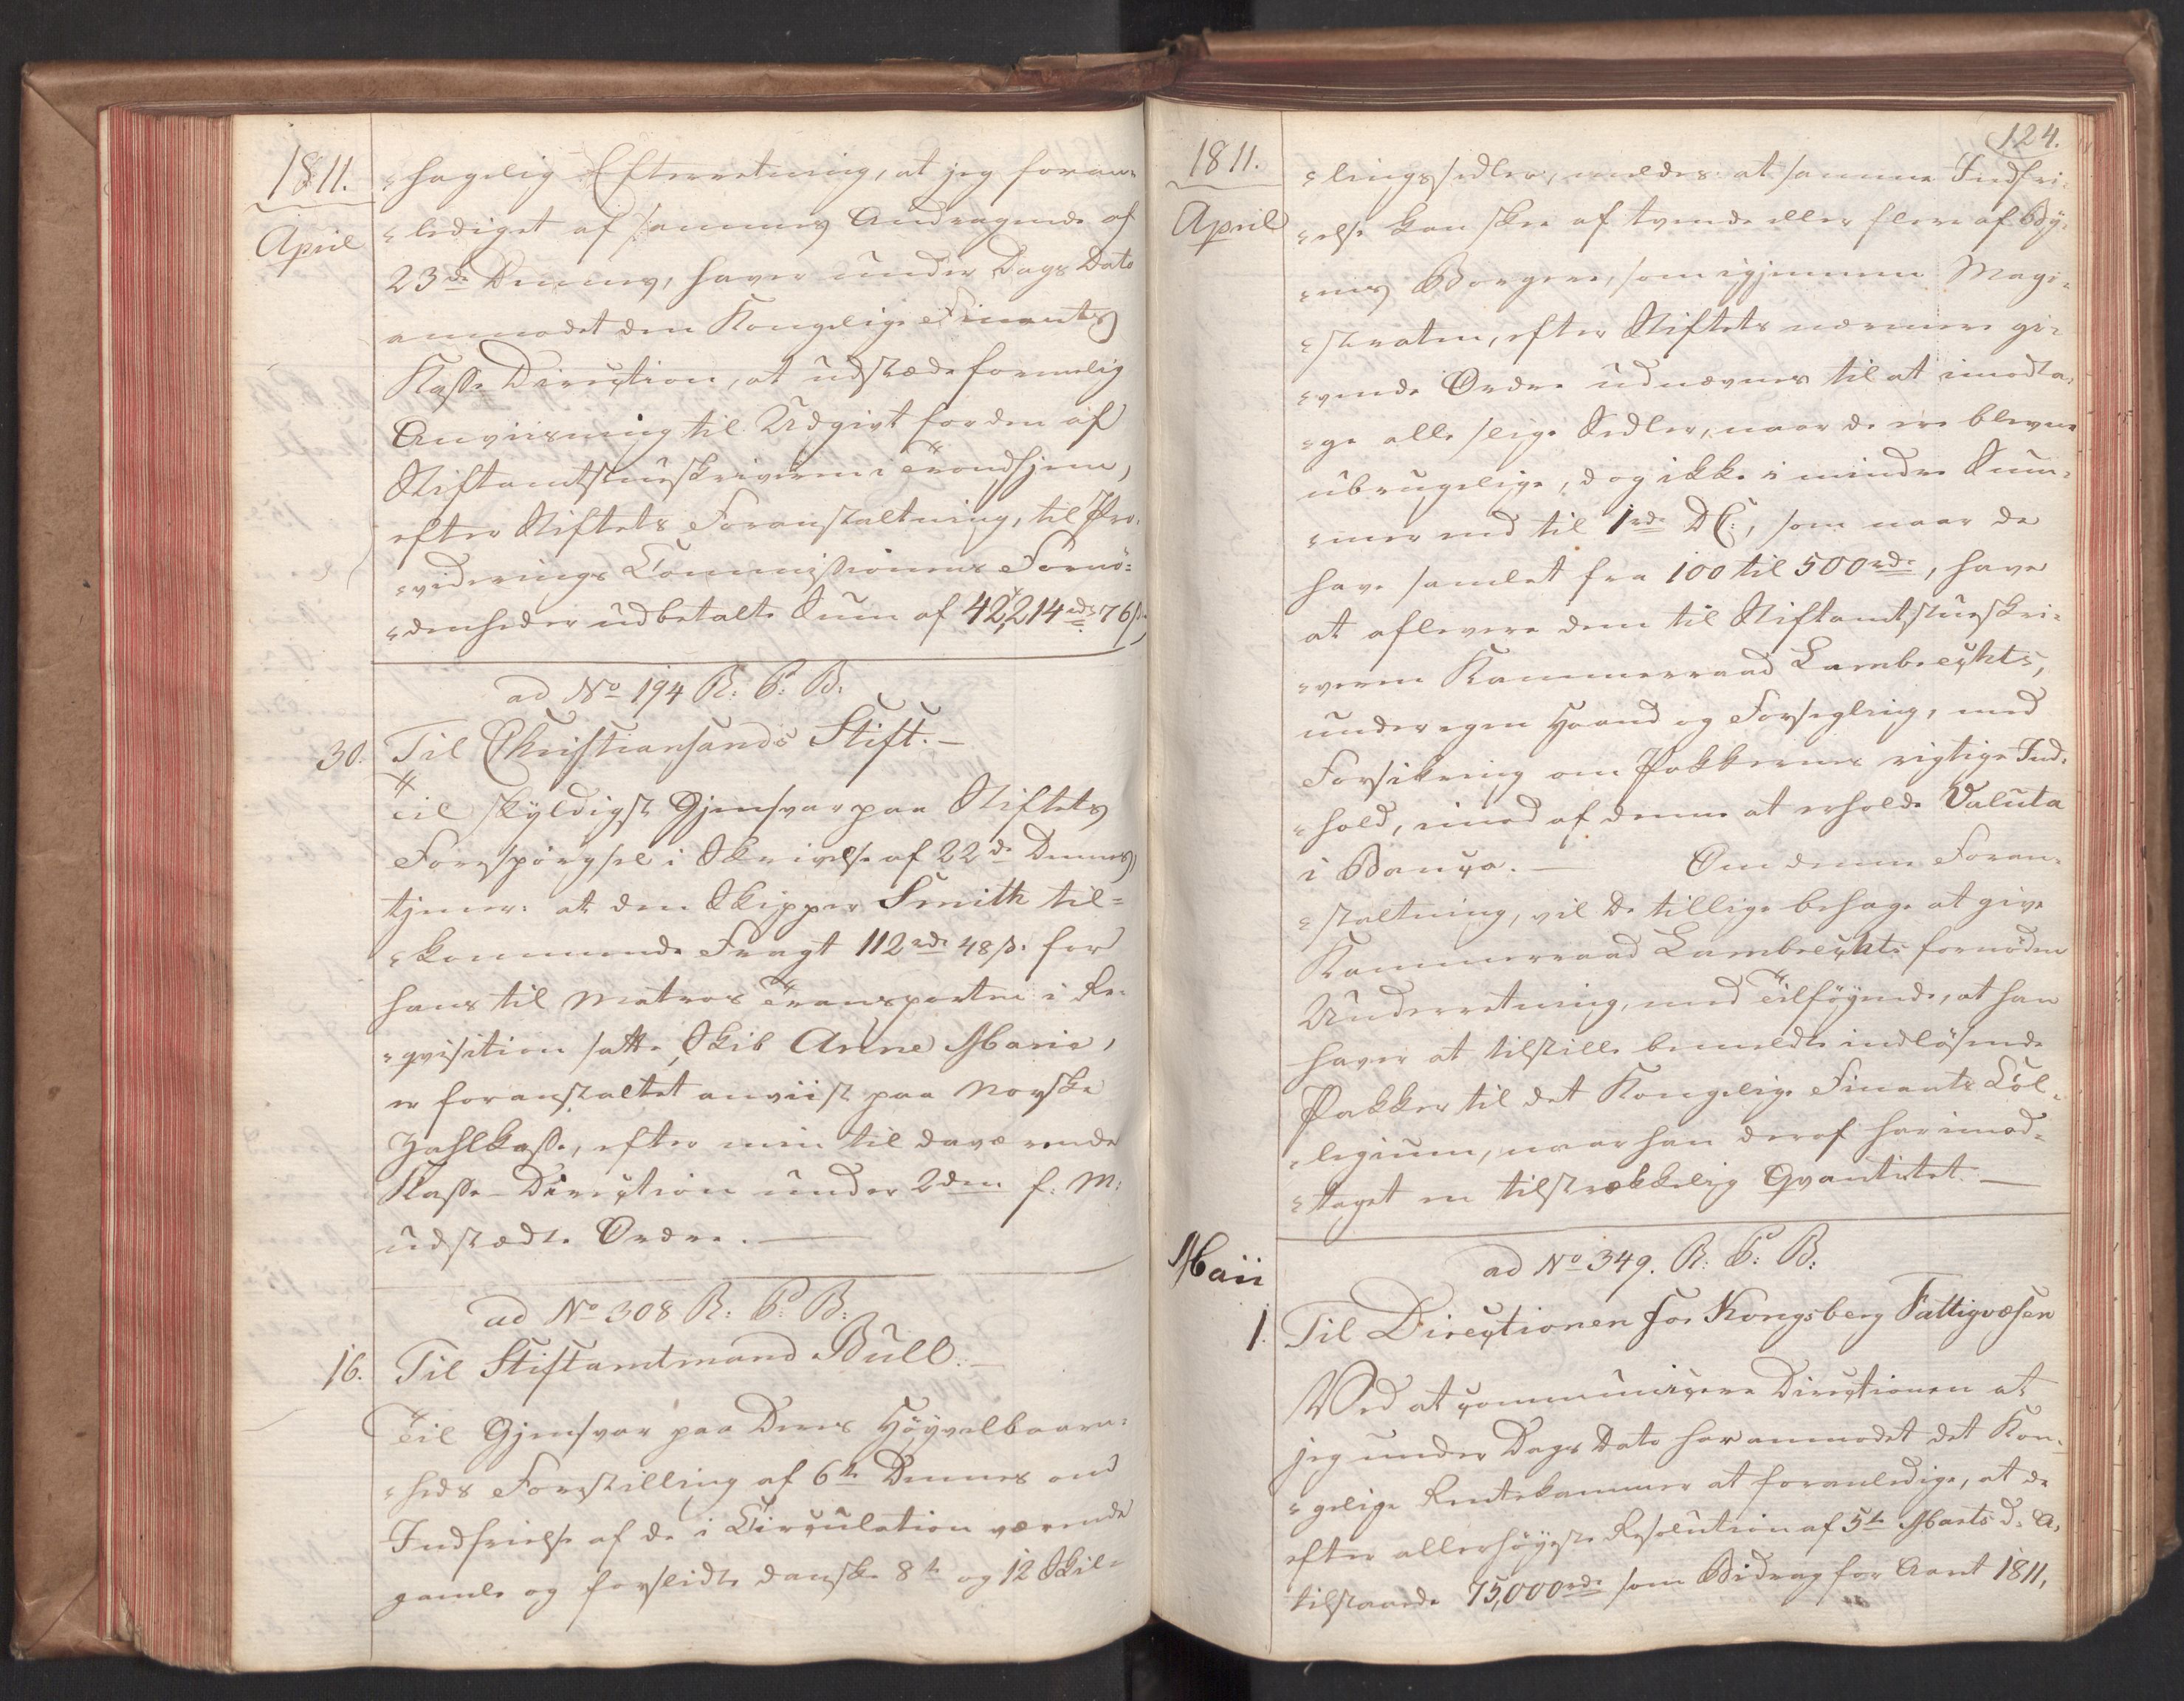 1811.
April
hagelig Efterretning, at jeg foran-
lediget af sammes Andragende af
23de Dennes, haver under Dags Dato
anmodet den Kongelige Finants
Kasse Direction, at udstæde formelig
Anviisning til Udgivt for den af
Stiftamtstueskriveren i Trondhjem,
efter Stiftets Foranstaltning, til Pro-
viderings Commissionens Fornö-
denheder udbetalte Sum af 42,214 rd 76 s.
ad No 194 R: C: B:
30.
Til Christiansands Stift. —
Til skyldigst Gjensvar paa Stiftets
Forespörgsel i Skrivelse af 22de Dennes,
tjener: at den Skipper Smith til-
kommende Fragt 112 rd 48 s. for
hans til Matros Transporten i Re-
qvisition satte Skib Anne Marie,
er foranstaltet anviist paa Norske
Zahlkasse, efter min til daværende
Kasse-Direction under 2den f: M:
udstædte Ordre. —
ad No 308 R: C: B:
16.
Til Stiftamtmand Bull. —
Til Gjensvar paa Deres Höyvelbaaren-
heds Forestilling af 6te Dennes om
Indfrielse af de i Circulation værende
gamle og forslidte danske 8te og 12 Skil-
124.
1811.
April
lingssedler, meldes: at samme Indfri-
else kan skee af tvende eller flere af By-
ens Borgere, som igjennem Magi-
straten, efter Stiftets nærmere gi-
vende Ordre udnævnes til at imodta-
ge alle slige Sedler, naar de ere blevne
ubrugelige, dog ikke i mindre Sum-
mer end til 1 rd DC:, som naar de
have samlet fra 100 til 500 rd, have
at aflevere dem til Stiftamtstueskri-
veren Kammerraad Lambrechts,
under egen Haand og Forsegling, med
Forsikring om Pakkernes rigtige Ind-
hold, imod af denne at erholde Valuta
i Banco. — Om denne Foran-
staltning, vil De tillige behage at give
Kammerraad Lambrechts fornöden
Underretning, med Tilföyende, at han
haver at tilstille bemeldte indlösende
Pakker til det Kongelige Finants Col-
legium, naar han deraf har imod-
taget en tilstrækkelig Qvantitet. —
Maii
ad No 349. R: C: B:
1.
Til Directionen for Kongsberg Fattigvæsen
Ved at communicere Directionen at
jeg under Dags Dato har anmodet det Kon-
gelige Rentekammer at foranledige, at de
efter allerhöyeste Resolution af 5te Marts d: A:
tilstaaede 75,000 rd som Bidrag for Aaret 1811,